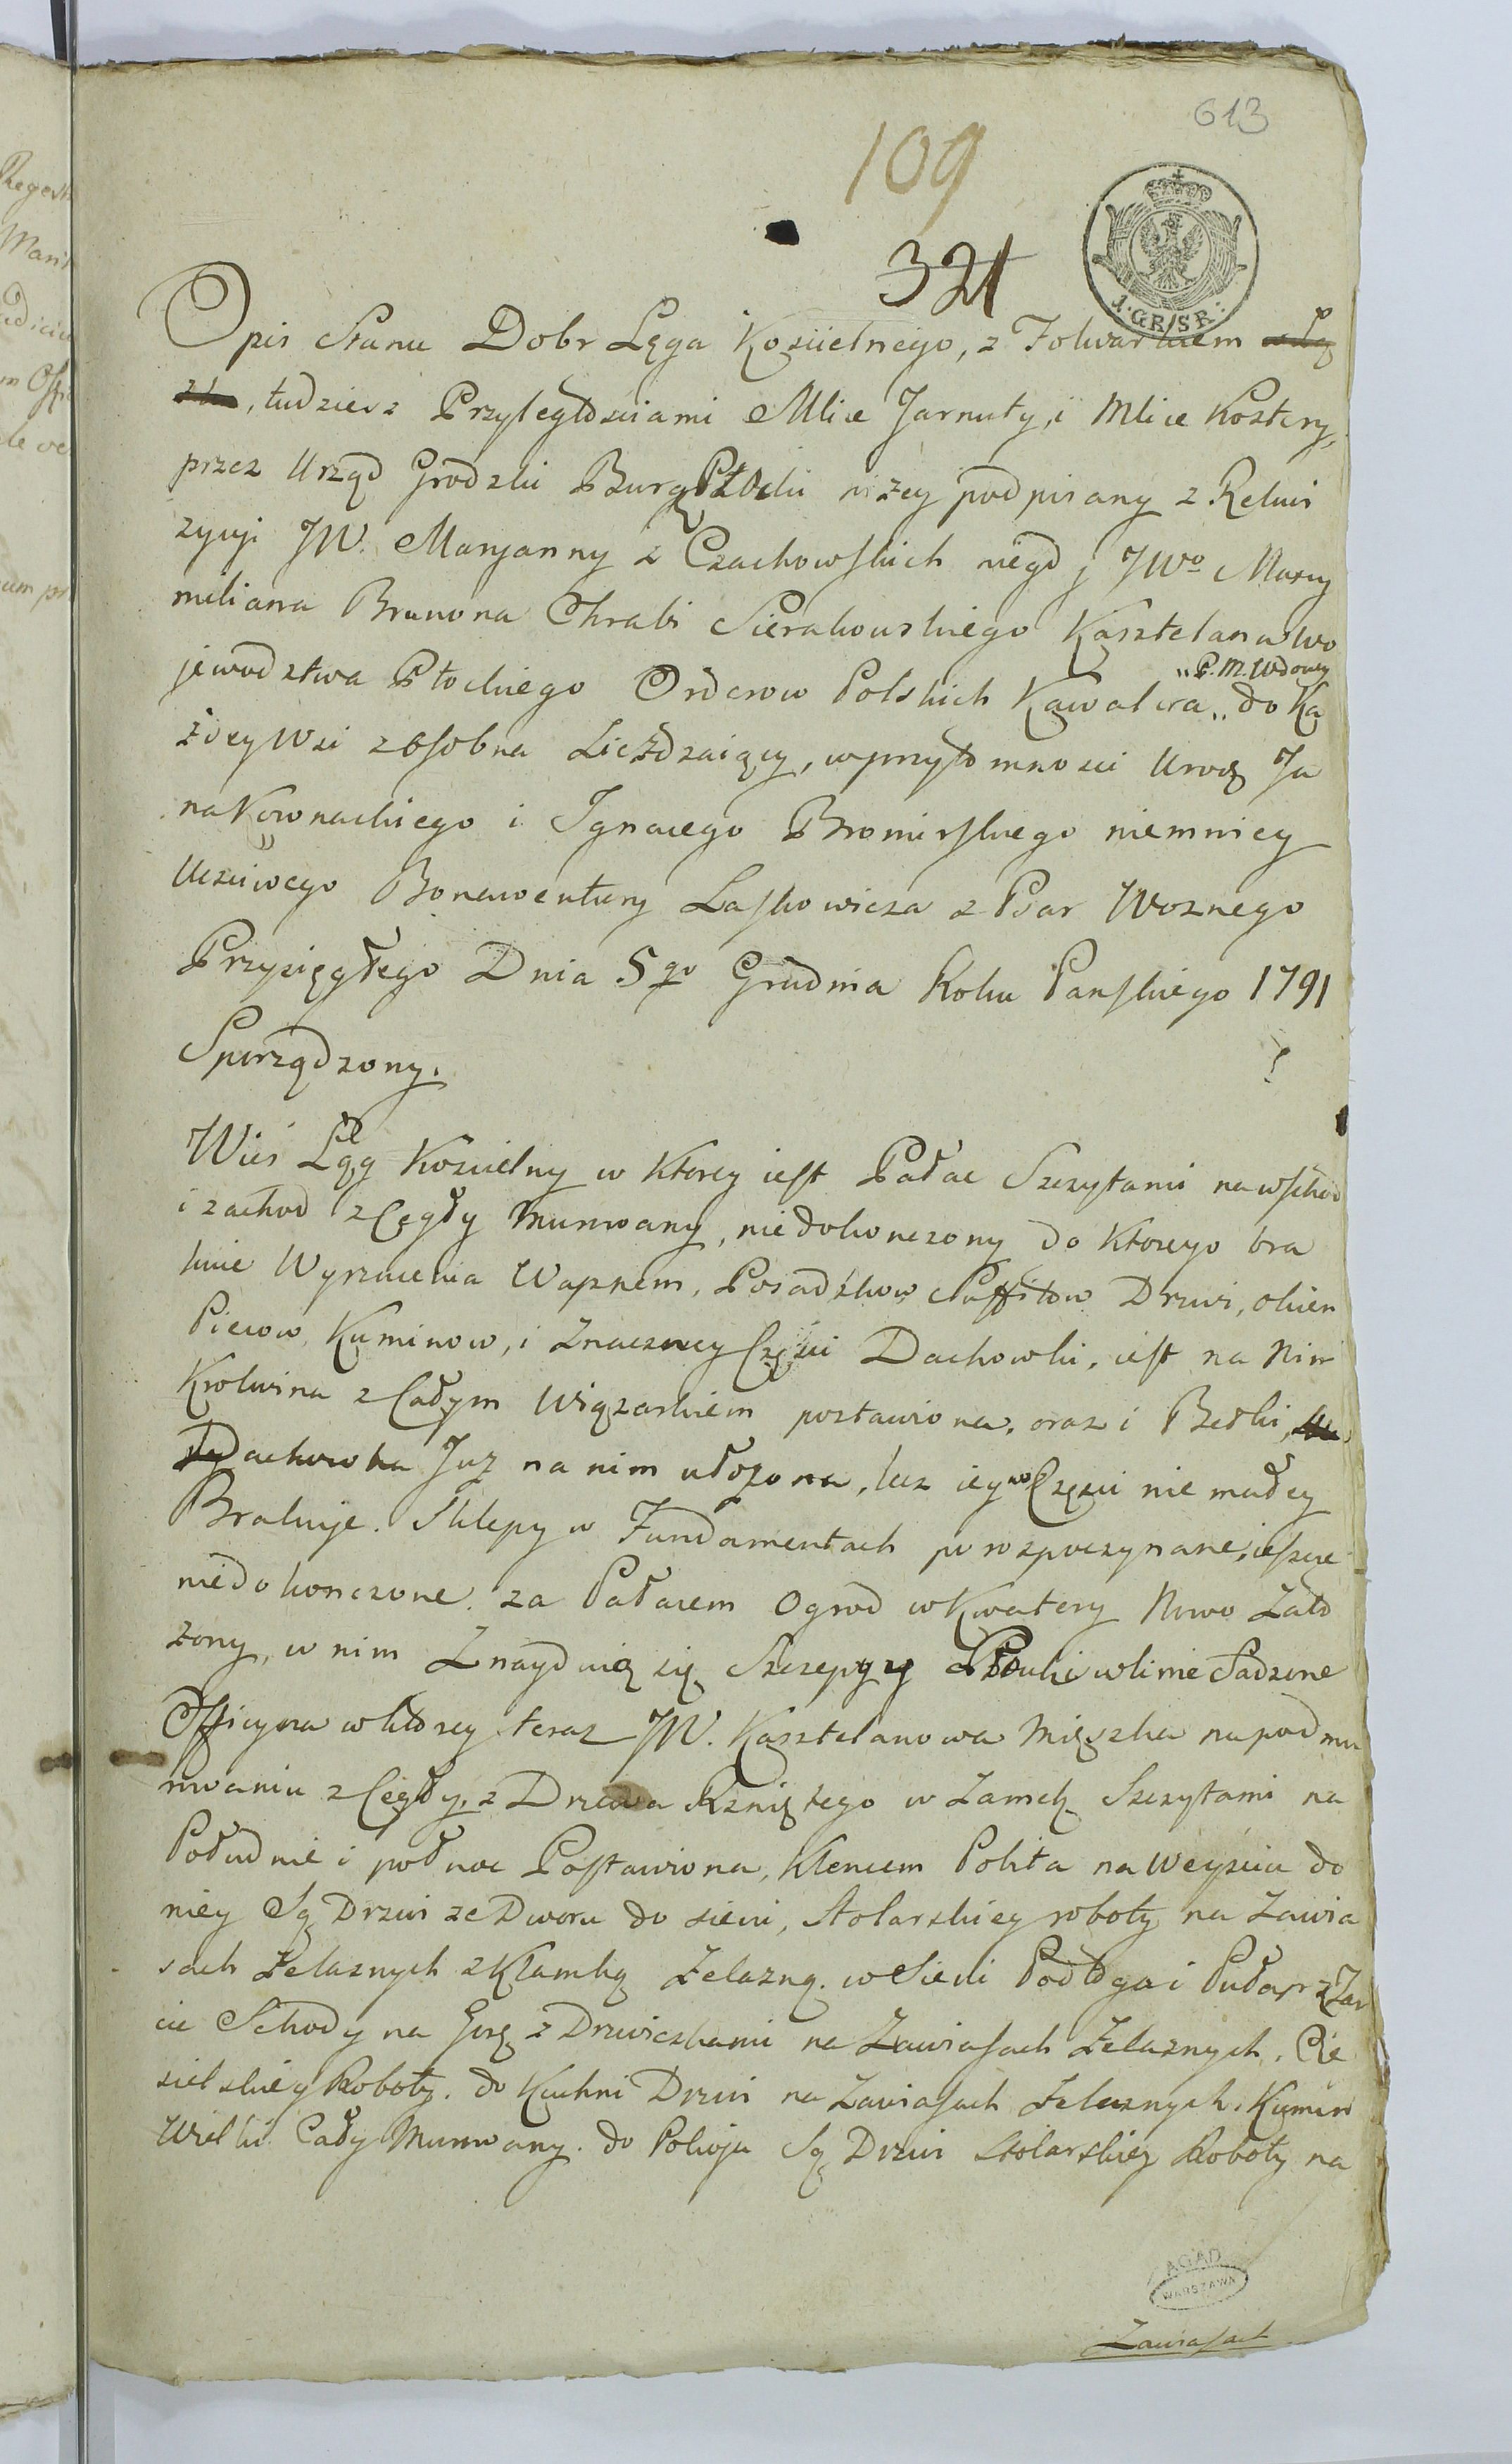 613
109
321
1. GR. SR.
Opis Stanu Dobr Lęga Koscielnego, z Folwarkiem
, tudziesz Przyległosciami Mlice Jarnuty, i Mlice Kostery,
przez Urząd Grodzki Burg Płocki niżey podpisany z Rekwi
zycyi JW. Maryanny z Czachowskich niegd JWo Maxy
miliana Brunona Chrabi Sierakowskiego Kasztelana Wo
jewodztwa Płockiego Orderow Polskich Kawalera „ do Ka
„P. M. Wdowy
żdey Wsi z osobna Zieżdzaiący, w przytomnosci Urodz Ja
na Kownackiego i Ignacego Bromirskiego niemniey
Uczciwego Bonawentury Laskowicza z Psar Woznego
Przysięgłego Dnia 5go Grudnia Roku Panskiego 1791
Sporządzony.
Wieś Łęg Koscielny w Ktorey iest Pałac Szczytami na wschod
i zachod z Cegły Murowany, niedokonczony do Ktorego bra
kuie Wyrzucenia Wapnem, Posadzkow Suffitow Drzwi, okien
Piecow, Kuminow, i Znaczney Części Dachowki, iest na Nim
Krokwina z Całym Wiązarkiem postawiona, oraz i Belki,
Dachowka Juz na nim ułożona, lecz iey w Częsci nie małey
Brakuje. Sklepy w Fundamentach porozpoczynane, ieszcze
niedokonczone. za Pałacem Ogrod w Kwatery Nowo Zało
zony, w nim Znayduią się Szczepy y Płonki w linie Sadzone
Officyna w ktorey teraz JW. Kasztelanowa Mięszka na podmu
rowaniu z Cegły, z Drzewa Rzniętego w Zamek Szczytami na
Południe i połnoc Postawiona, Klencem Pobita na Weysciu do
niey Są Drzwi ze Dworu do sieni, Stolarskiey roboty na Zawia
sach Żelaznych z Klamką Żelazną. w Sieni Podłoga i Pułap z Tar
cic Schody na Gorę z Drzwiczkami na Zawiasach Żelaznych, Cie
sielskiey Roboty. do Kuchni Drzwi na Zawiasach Żelaznych. Kumin
Wielki Cały Murowany. do Pokoju Są Drzwi Stolarskiey Roboty na
AGAD
WARSZAWA
Zawiasach